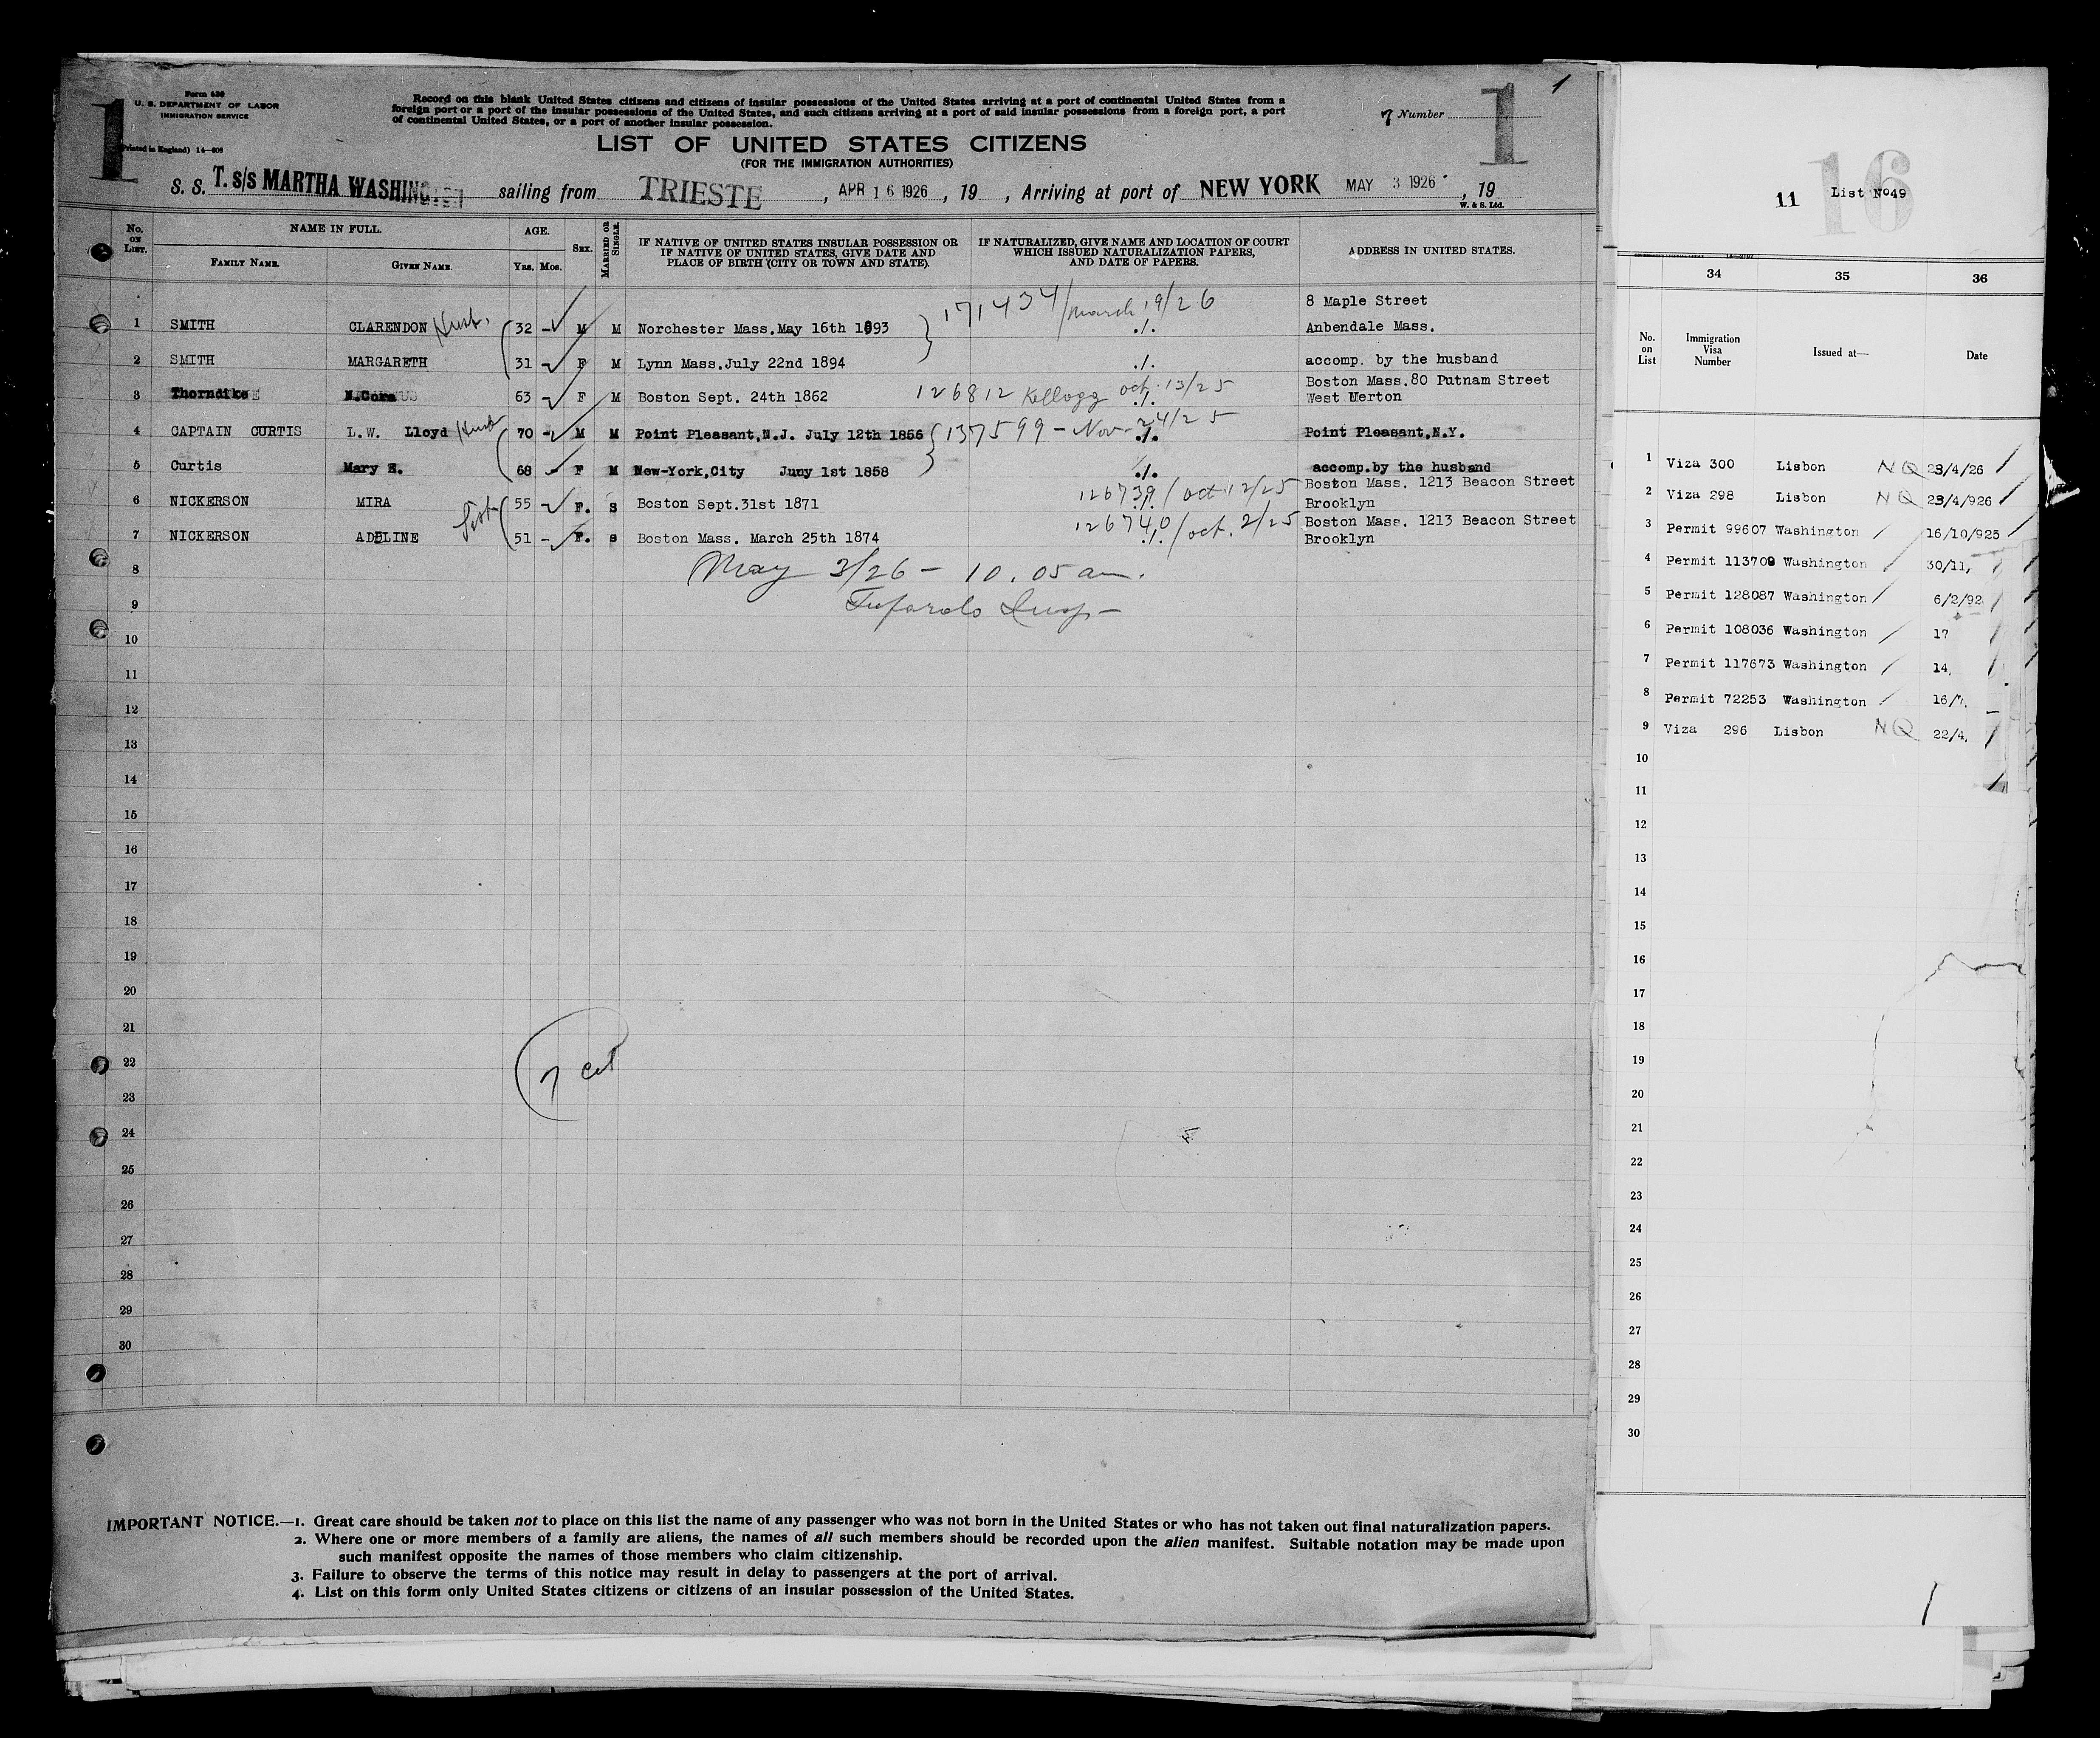 Form 630
U. S. DEPARTMENT OF LABOR
IMMIGRATION SERVICE
(Printed in England) 14—606
1
Record on this blank United States citizens and citizens of insular possessions of the United States arriving at a port of continental United States from a
foreign port or a port of the insular possessions of the United States, and such citizens arriving at a port of said insular possessions from a foreign port, a port
of continental United States, or a port of another insular possession.
7 Number
1
1
LIST OF UNITED STATES CITIZENS
(FOR THE IMMIGRATION AUTHORITIES)
S. S. T. s/s MARTHA WASHINGTON sailing from TRIESTE, APR 16 1926, 19 , Arriving at port of NEW YORK MAY 3 1926, 19
W. & S. Ltd.
No. on List. NAME IN FULL. AGE. Sex. Married or Single. IF NATIVE OF UNITED STATES INSULAR POSSESSION OR IF NATIVE OF UNITED STATES, GIVE DATE AND PLACE OF BIRTH (CITY OR TOWN AND STATE). IF NATURALIZED, GIVE NAME AND LOCATION OF COURT WHICH ISSUED NATURALIZATION PAPERS, AND DATE OF PAPERS. ADDRESS IN UNITED STATES.
Family Name. Given Name. Yrs. Mos.
171434/March 19/26 8 Maple Street
1 SMITH CLARENDON Husb. 32 - M M Norchester Mass.May 16th 1893 ./. Anbendale Mass.
2 SMITH MARGARETH 31 - F M Lynn Mass.July 22nd 1894 ./. accomp. by the husband
126812 Kellogg Oct. 13/25 Boston Mass.80 Putnam Street
3 Thorndike N.Cora 63 - F M Boston Sept. 24th 1862 ./. West Uerton
4 CAPTAIN CURTIS L.W. Lloyd Husb 70 - M M Point Pleasant,N.J. July 12th 1856 137599 - Nov- 24/25 ./. Point Pleasant,N.Y.
5 Curtis Mary E. 68 - F M New-York,City Juny 1st 1858 ./. accomp.by the husband
126739/Oct 12/25 Boston Mass. 1213 Beacon Street
6 NICKERSON MIRA 55 - F. S Boston Sept.31st 1871 ./. Brooklyn
126740/Oct. 2/25 Boston Mass. 1213 Beacon Street
7 NICKERSON ADELINE Sist 51 - F. s Boston Mass. March 25th 1874 ./. Brooklyn
8 May 3/26 - 10.05 am.
9 Insp-
10
11
12
13
14
15
16
17
18
19
20
21
22
7 cit
23
24
25
26
27
28
29
30
IMPORTANT NOTICE.—1. Great care should be taken not to place on this list the name of any passenger who was not born in the United States or who has not taken out final naturalization papers.
2. Where one or more members of a family are aliens, the names of all such members should be recorded upon the alien manifest. Suitable notation may be made upon
such manifest opposite the names of those members who claim citizenship.
3. Failure to observe the terms of this notice may result in delay to passengers at the port of arrival.
4. List on this form only United States citizens or citizens of an insular possession of the United States.
16
11 List No49
34 35 36
No. on List Immigration Visa Number Issued at— Date
1 Viza 300 Lisbon NQ 23/4/26
2 Viza 298 Lisbon NQ 23/4/926
3 Permit 99607 Washington 16/10/925
4 Permit 113709 Washington 30/11,
5 Permit 128087 Washington 6/2/92
6 Permit 108036 Washington 17
7 Permit 117673 Washington 14,
8 Permit 72253 Washington 16/7.
9 Viza 296 Lisbon NQ 22/4.
10
11
12
13
14
15
16
17
18
19
20
21
22
23
24
25
26
27
28
29
30